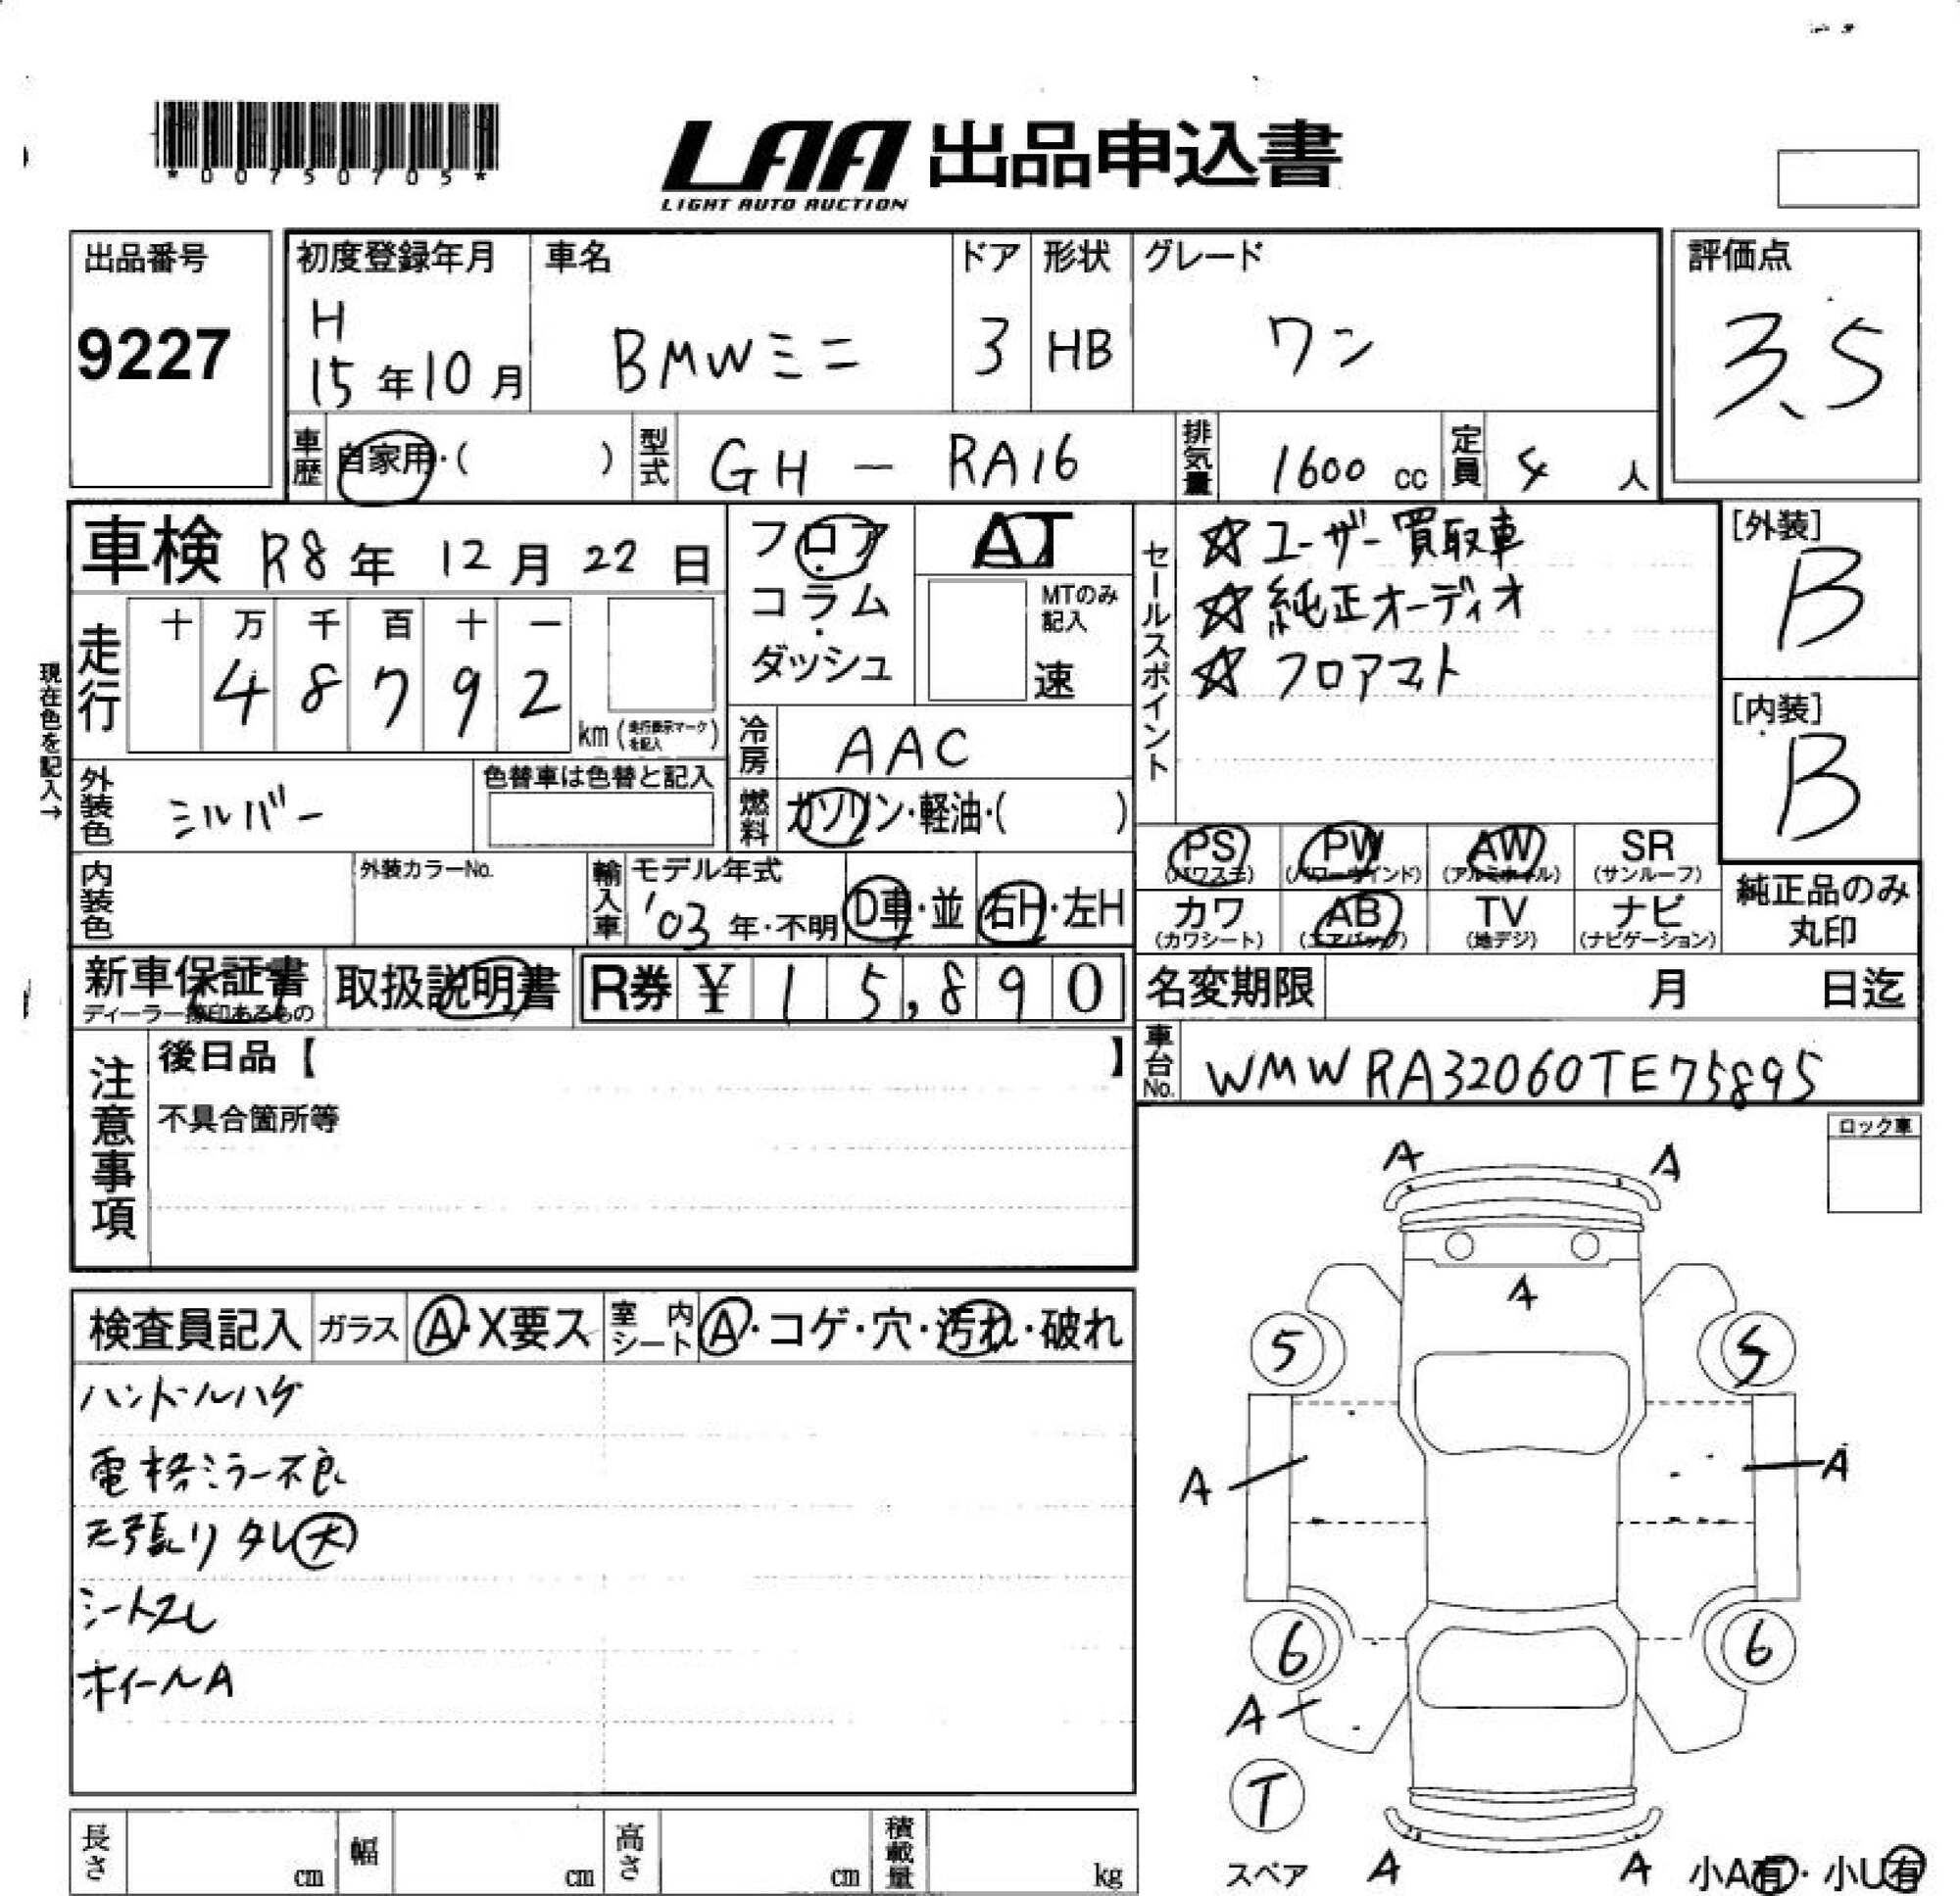 *00750705*
LAA 出品申込書
LIGHT AUTO AUCTION
出品番号
9227
初度登録年月
H
15年10月
車名
BMWミニ
ドア
3
形状
HB
グレード
ワン
評価点
3.5
車歴
自家用・( )
型式
GH-RA16
排気量
1600 cc
定員
4人
車検 R8年 12月 22日
現在色を記入→
走行
十 万 千 百 十 一
4 8 7 9 2
km (走行表示マークを記入)
フロア・コラム・ダッシュ
AT
MTのみ記入
速
冷房
AAC
燃料
ガソリン・軽油・( )
外装色
シルバー
色替車は色替と記入
内装色
外装カラーNo.
輸入車
モデル年式
'03年・不明
D車・並
右H・左H
セールスポイント
☆ユーザー買取車
☆純正オーディオ
☆フロアマト
[外装]
B
[内装]
B
PS (パワステ)
PW (パワーウインド)
AW (アルミホイル)
SR (サンルーフ)
カワ (カワシート)
AB (エアバッグ)
TV (地デジ)
ナビ (ナビゲーション)
純正品のみ
丸印
新車保証書
ディーラー捺印あるもの
取扱説明書
R券 ¥ 15,890
名変期限 月 日迄
車台No.
WMWRA32060TE75895
注意事項
後日品【 】
不具合箇所等
ロック車
検査員記入
ガラス
A・X要ス
室内シート
A・コゲ・穴・汚れ・破れ
ハンドルハゲ
電格ミラー不良
天張りタレ大
シートスレ
ホイールA
A A
A
5 5
A A
6 6
A
T
スペア
A A
小A有・小U有
長さ cm
幅 cm
高さ cm
積載量 kg